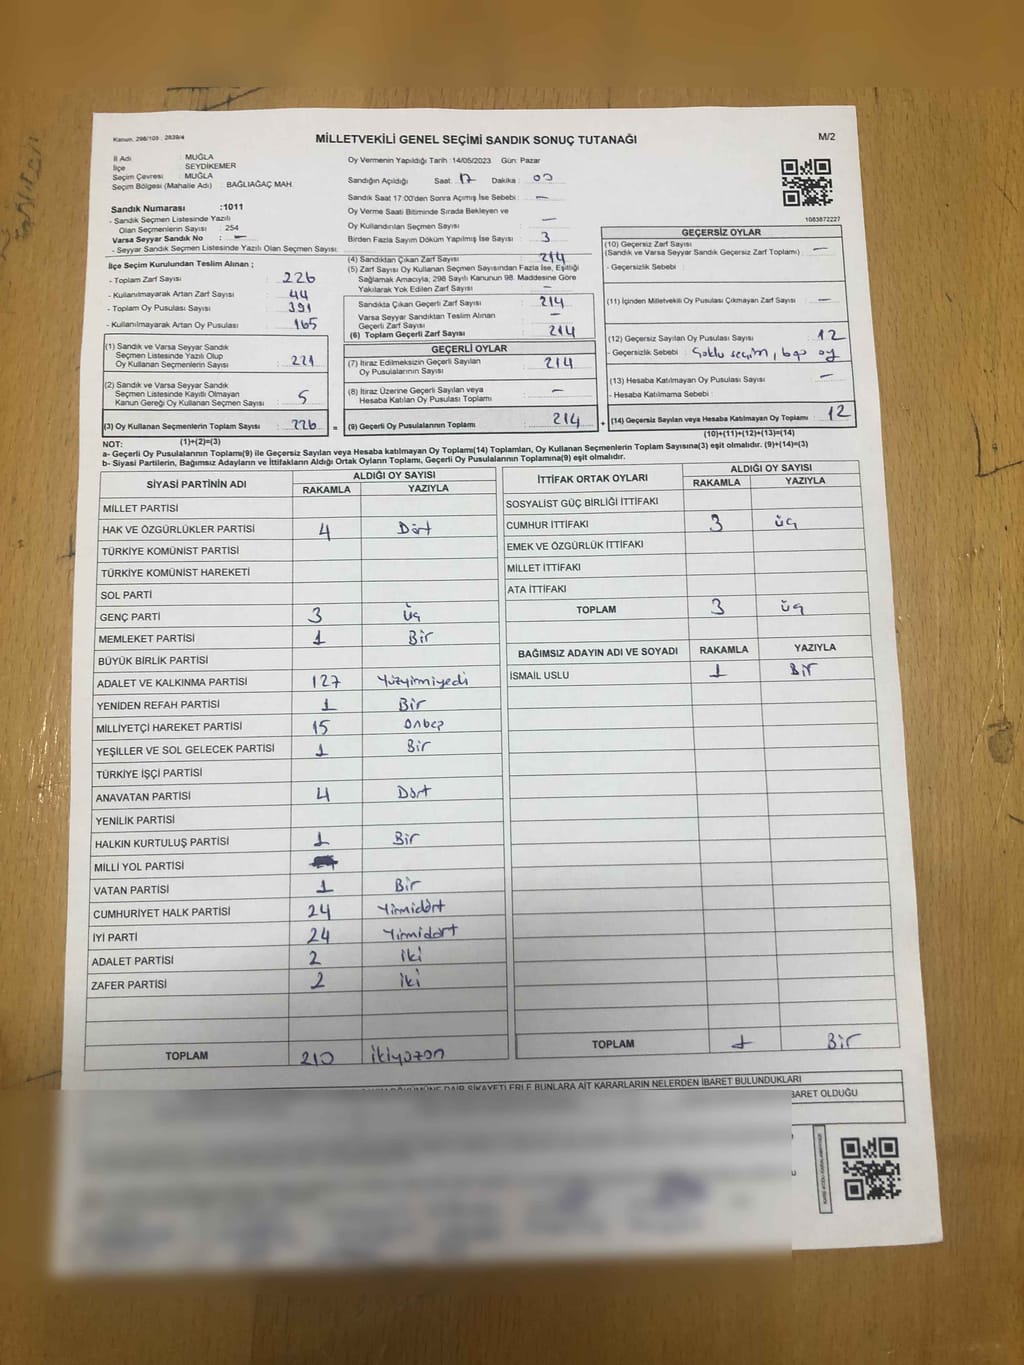 Kanun. 298/103 , 2839/4
MİLLETVEKİLİ GENEL SEÇİMİ SANDIK SONUÇ TUTANAĞI
M/2
İl Adı : MUĞLA
İlçe : SEYDİKEMER
Seçim Çevresi : MUĞLA
Seçim Bölgesi (Mahalle Adı) : BAĞLIAĞAÇ MAH.
Sandık Numarası :1011
- Sandık Seçmen Listesinde Yazılı
Olan Seçmenlerin Sayısı : 254
Varsa Seyyar Sandık No : —
- Seyyar Sandık Seçmen Listesinde Yazılı Olan Seçmen Sayısı:
Oy Vermenin Yapıldığı Tarih :14/05/2023 Gün: Pazar
Sandığın Açıldığı Saat: 17 Dakika : 00
Sandık Saat 17:00'den Sonra Açımış İse Sebebi : —
Oy Verme Saati Bitiminde Sırada Bekleyen ve
Oy Kullandırılan Seçmen Sayısı : —
Birden Fazla Sayım Döküm Yapılmış İse Sayısı : 3
1083872227
İlçe Seçim Kurulundan Teslim Alınan ;
- Toplam Zarf Sayısı : 226
- Kullanılmayarak Artan Zarf Sayısı : 44
- Toplam Oy Pusulası Sayısı : 391
- Kullanılmayarak Artan Oy Pusulası : 165
(1) Sandık ve Varsa Seyyar Sandık
Seçmen Listesinde Yazılı Olup
Oy Kullanan Seçmenlerin Sayısı : 221
(2) Sandık ve Varsa Seyyar Sandık
Seçmen Listesinde Kayıtlı Olmayan
Kanun Gereği Oy Kullanan Seçmen Sayısı : 5
(3) Oy Kullanan Seçmenlerin Toplam Sayısı : 226
(1)+(2)=(3)
(4) Sandıktan Çıkan Zarf Sayısı : 214
(5) Zarf Sayısı Oy Kullanan Seçmen Sayısından Fazla İse, Eşitliği
Sağlamak Amacıyla; 298 Sayılı Kanunun 98. Maddesine Göre
Yakılarak Yok Edilen Zarf Sayısı : —
Sandıkta Çıkan Geçerli Zarf Sayısı : 214
Varsa Seyyar Sandıktan Teslim Alınan
Geçerli Zarf Sayısı : —
(6) Toplam Geçerli Zarf Sayısı : 214
GEÇERLİ OYLAR
(7) İtiraz Edilmeksizin Geçerli Sayılan
Oy Pusulalarının Sayısı : 214
(8) İtiraz Üzerine Geçerli Sayılan veya
Hesaba Katılan Oy Pusulası Toplamı : —
= (9) Geçerli Oy Pusulalarının Toplamı : 214 +
GEÇERSİZ OYLAR
(10) Geçersiz Zarf Sayısı
(Sandık ve Varsa Seyyar Sandık Geçersiz Zarf Toplamı) : —
- Geçersizlik Sebebi :
(11) İçinden Milletvekili Oy Pusulası Çıkmayan Zarf Sayısı : —
(12) Geçersiz Sayılan Oy Pusulası Sayısı : 12
- Geçersizlik Sebebi : Çoklu seçim, boş oy
(13) Hesaba Katılmayan Oy Pusulası Sayısı : —
- Hesaba Katılmama Sebebi :
(14) Geçersiz Sayılan veya Hesaba Katılmayan Oy Toplamı : 12
(10)+(11)+(12)+(13)=(14)
NOT:
a- Geçerli Oy Pusulalarının Toplamı(9) ile Geçersiz Sayılan veya Hesaba katılmayan Oy Toplamı(14) Toplamları, Oy Kullanan Seçmenlerin Toplam Sayısına(3) eşit olmalıdır. (9)+(14)=(3)
b- Siyasi Partilerin, Bağımsız Adayların ve İttifakların Aldığı Ortak Oyların Toplamı, Geçerli Oy Pusulalarının Toplamına(9) eşit olmalıdır.
SİYASİ PARTİNİN ADI ALDIĞI OY SAYISI
RAKAMLA YAZIYLA
MİLLET PARTİSİ
HAK VE ÖZGÜRLÜKLER PARTİSİ 4 Dört
TÜRKİYE KOMÜNİST PARTİSİ
TÜRKİYE KOMÜNİST HAREKETİ
SOL PARTİ
GENÇ PARTİ 3 Üç
MEMLEKET PARTİSİ 1 Bir
BÜYÜK BİRLİK PARTİSİ
ADALET VE KALKINMA PARTİSİ 127 Yüzyirmiyedi
YENİDEN REFAH PARTİSİ 1 Bir
MİLLİYETÇİ HAREKET PARTİSİ 15 Onbeş
YEŞİLLER VE SOL GELECEK PARTİSİ 1 Bir
TÜRKİYE İŞÇİ PARTİSİ
ANAVATAN PARTİSİ 4 Dört
YENİLİK PARTİSİ
HALKIN KURTULUŞ PARTİSİ 1 Bir
MİLLİ YOL PARTİSİ
VATAN PARTİSİ 1 Bir
CUMHURİYET HALK PARTİSİ 24 Yirmidört
İYİ PARTİ 24 Yirmidört
ADALET PARTİSİ 2 iki
ZAFER PARTİSİ 2 iki
TOPLAM 210 ikiyüzon
İTTİFAK ORTAK OYLARI ALDIĞI OY SAYISI
RAKAMLA YAZIYLA
SOSYALIST GÜÇ BİRLİĞİ İTTİFAKI
CUMHUR İTTİFAKI 3 üç
EMEK VE ÖZGÜRLÜK İTTİFAKI
MİLLET İTTİFAKI
ATA İTTİFAKI
TOPLAM 3 üç
BAĞIMSIZ ADAYIN ADI VE SOYADI RAKAMLA YAZIYLA
İSMAİL USLU 1 Bir
TOPLAM 1 Bir
DÖKÜMÜNE DAİR ŞİKAYETLERLE BUNLARA AİT KARARLARIN NELERDEN İBARET BULUNDUKLARI
BARET OLDUĞU